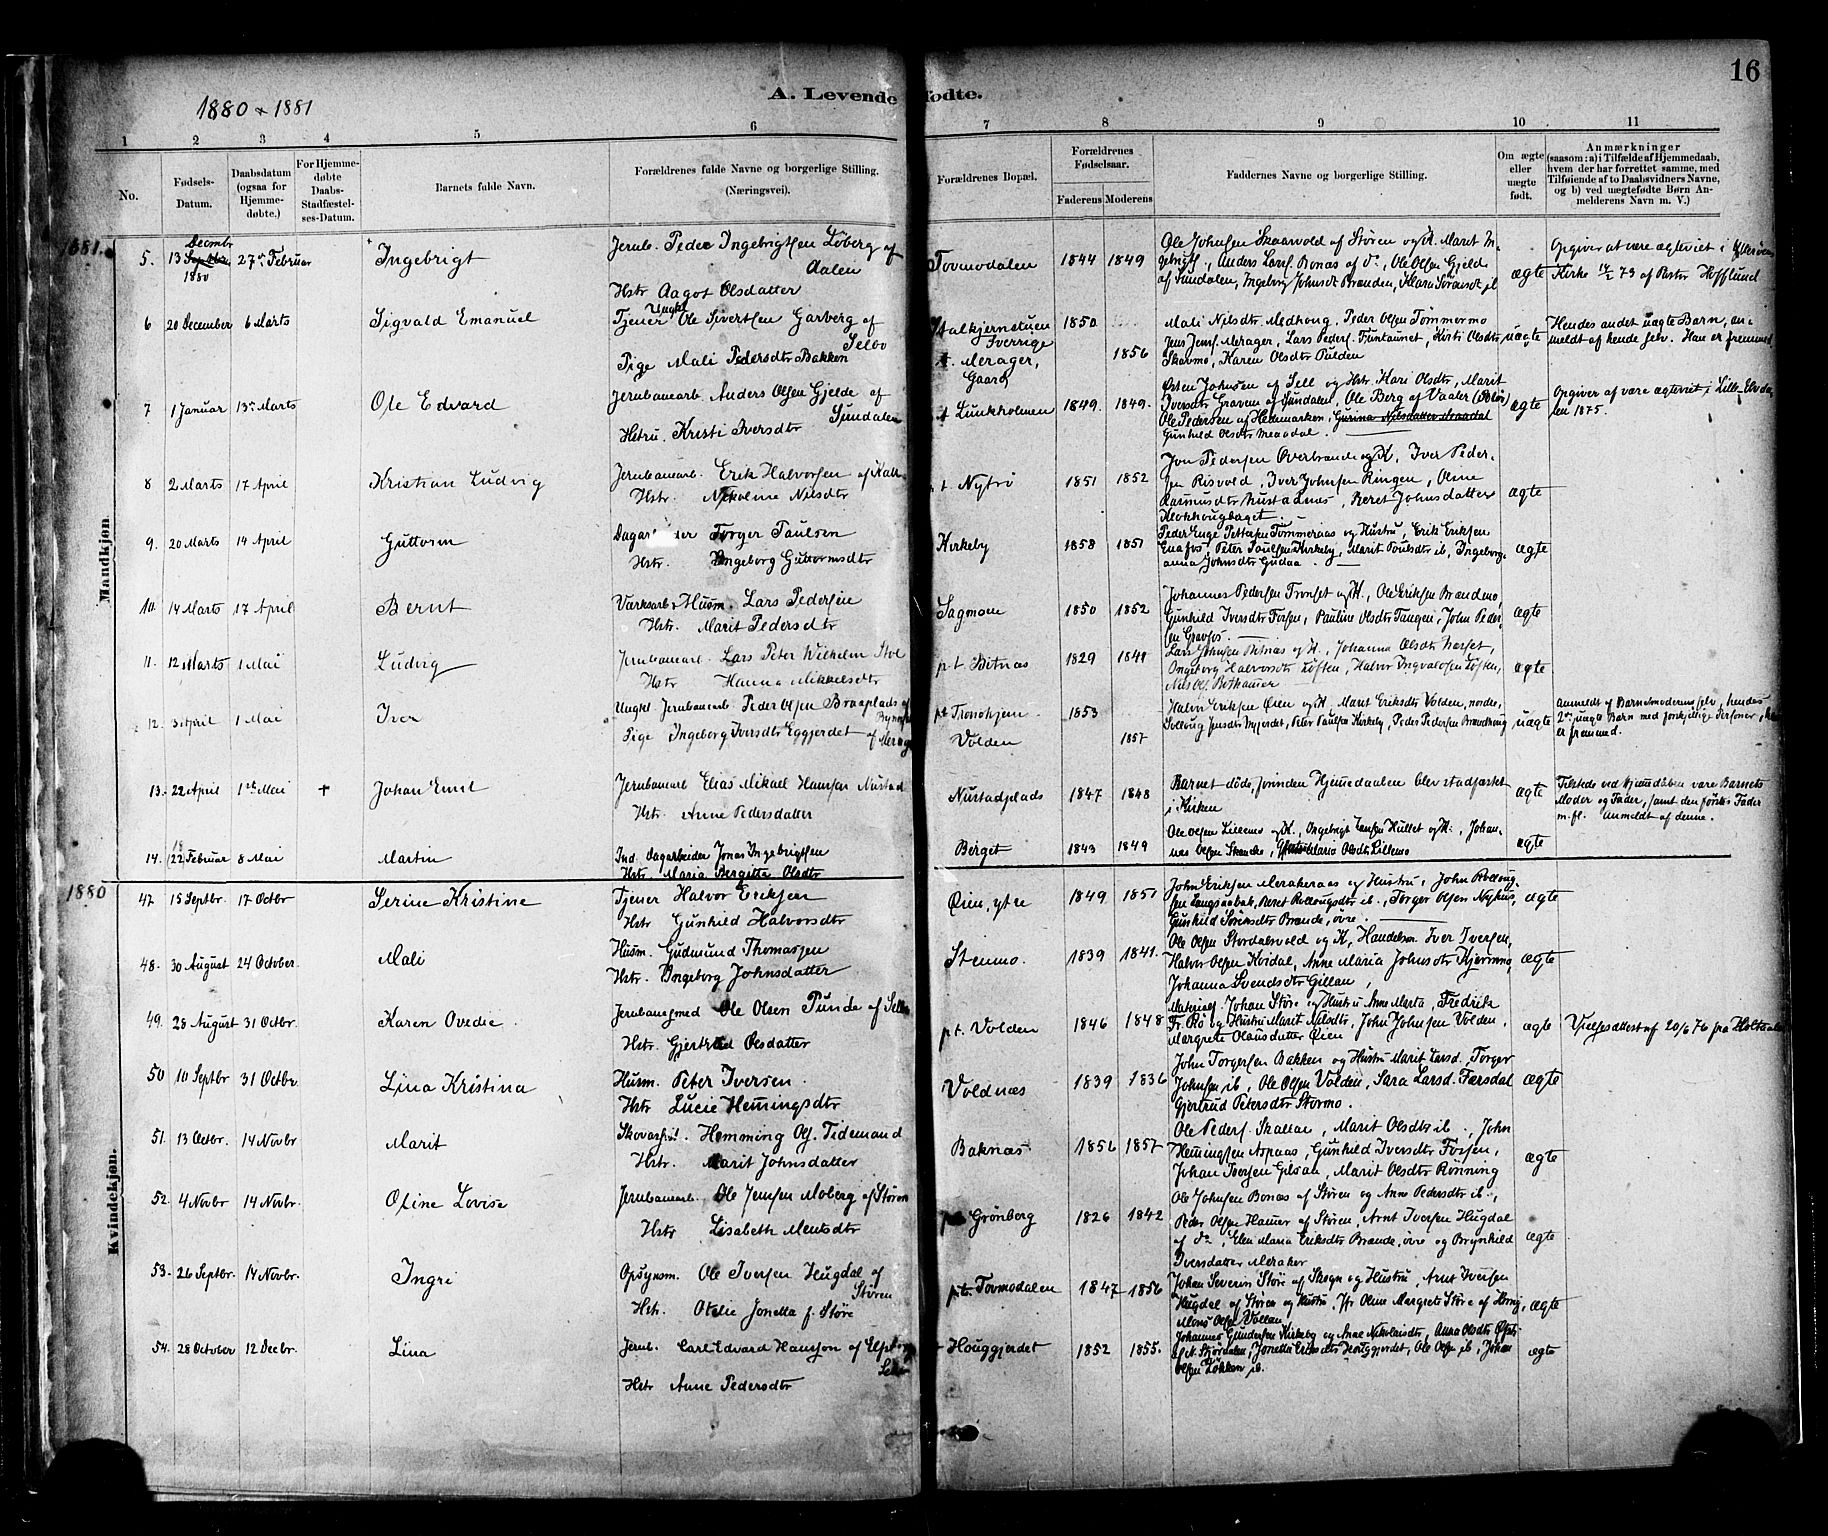 16
1880 & 1881
A. Levende fødte.
1 2 3 4 5 6 7 8 9 10 11
No.
Fødsels-Datum.
Daabsdatum (ogsaa for Hjemmedøbte.)
For Hjemmedøbte Daabs-Stadfæstelses-Datum.
Barnets fulde Navn.
Forældrenes fulde Navne og borgerlige Stilling. (Næringsvei).
Forældrenes Bopæl.
Forældrenes Fødselsaar.
Faderens Moderens
Faddernes Navne og borgerlige Stilling.
Om ægte eller uægte født.
Anmærkninger
(saasom: a) i Tilfælde af Hjemmedaab,
hvem der har forrettet samme, med
Tilføiende af to Daabsvidners Navne,
og b) ved uægtefødte Børn Anmelderens Navn m. V.)
Mandkjøn.
1881.
5. 13 Decmbr 1880 27de Februar Ingebrigt
Jernb. Peder Ingebrigtsen Løberg af
Aalen
Hstr Aagot Olsdatter
Tovmodalen 1844 1849
Ole Johnsen Skaarvold af Støren og K. Marit
Anders Larss. Bonæs af do, Ole Olsen Gjeld
af Sundalen, Ingeborg Johnsdt Brænden,
ægte
Opgiver at være ægteviet i
Kirke 73 af Pastor Hofflund
6 20 December 6 Marts Sigvald Emanuel
Tjener Ungkl Ole Sivertsen Garberg af
Selbo
Pige Mali Pedersdtr Bakken
Sverrige
Merager,
Gaard
1850 1856
Mali Nilsdtr Medhoug, Peder Olsen Tømmermo
Jens Jens. Merager, Lars Peders. Funtaunet, Kirsti Olsdtr
Skarmo, Karen Olsdtr
uægte
Hendes andet uægte Barn, anmeldt
af hende selv. Han er fremmed
7 1 Januar 13de Marts Ole Edvard
Jernbanearb Anders Olsen Gjelde af
Sundalen
Hstru. Kristi Iversdtr
Lunkholmen 1849. 1849.
Østen Johnsen af Sell og Hstr. Kari Olsdtr, Marit
Iversdtr Gravem af Sundalen, Ole Berg af Vaaler (Solør)
Ole Pedersen af Hedmarken, Gurina Nilsdatter Meaadal
Gunhild Olsdtr Meaadal.
ægte
Opgiver af være ægteviet i Lille Elvdalen 1875.
8 2 Marts 17 April Kristian Ludvig
Jernbanearb. Erik Halvorsen af
Hstr. Nikoline Nilsdtr
Nytrø 1851 1852
Jon Pedersen Overbrande og K, Iver Pedersen
Risvold, Iver Johnsen Ringen, Oline
Rasmusdtr Nustadnæs, Beret Johnsdatter
Klokhougbaget.
ægte
9. 20 Marts 14 April Guttorm
Dagarbeider Torger Paulsen
Hstr. Ingeborg Guttormsdtr
Kirkeby 1858 1851
Peder Inge Pettersen Tømmeraas og Hustru, Erik Eriksen
Enafos, Peter Paulsen Kirkeby, Marit Poulsdtr ib, Ingeborganna
Johnsdtr Gudaa.
ægte
10. 14 Marts 17 April Bernt
Værksarb & Husm. Lars Pedersen
Hstr. Marit Pedersdtr
Sagmoen 1850 1852
Johannes Pedersen Tronset og K, Ole Eriksen Brændmo,
Gunhild Iversdtr Forsen, Pauline Olsdtr Tangen, John Pedersen
Gravfos.
ægte
11. 12 Marts 1 Mai Ludvig
Jernbanearb. Lars Peter Wilhelm
Hstr Hanna Mikkelsdtr
p.t. Bitnæs 1829 1849
Lars Johnsen Bitnæs og K., Johanna Olsdtr
Ingeborg Halvorsdtr Loften, Halvor Ingvaldsen Loften,
ægte
12. 3 April 1 Mai Iver
Ungkl. Jernbanearb Peder Olsen Braaplads af
Pige Ingeborg Iversdtr Eggjerdet af
pt Tronhjem
Volden
1853 1857
Halvor Eriksen Øien og K, Marit Eriksdtr Volden, nordre,
Solveig Jensdtr Nygjerdet, Peter Paulsen Kirkeby, Peder Pedersen
uægte
anmeldt af Barnemoderen selv, hendes
2det uægte Barn med forskjellige Personer, han
er fremmed.
13. 22 April 1ste Mai + Johan Emil
Jernbanearb Elias Mikael Hansen Nustad
Hstr. Anne Pedersdatter
Nustadplads 1847 1848
Barnet døde, forinden Hjemmedaaben blev stadfæstet
i Kirken
ægte
Tilstede ved Hjemdaaben vare Barnets
Moder og Fader, samt den førstes Fader
m.fl. Anmeldt af denne.
14. 18 (22) Februar 8 Mai Martin
Ind. Dagarbeider Jonas Ingebrigtsen
Hstr. Maria Bergitte Olsdtr
Berget 1843 1849
Ole Olsen Lillemo og K., Ingebrigt Larsen Hullet og K., Johannes
Olsen Skancke, Maria Olsdtr Lillemo
ægte
Kvindekjøn.
1880
47. 15 Septbr. 17 Octbr Serine Kristine
Tjener Halvor Eriksen
Hstr Gunhild Halvorsdtr
Øien, ytre 1849 1851
John Eriksen Merakeraas og Hustru, John Rollougsen
Langsaabak, Beret Rollougsdtr ib., Torger Olsen Nyhus,
Gunhild Brænde, øvre.
ægte
48. 30 August 24 October. Mali
Husm. Gudmund Thomassen
Hstr. Ingeborg Johnsdatter
Stenmo. 1839 1841.
Ole Olsen Stordalsvold og K, Handelsm Iver Iversen,
Halvor Olsen Kvidal, Anne Maria Johnsdtr
Johanna Svendsdtr Gillan,
ægte
49. 28 August 31 Octbr. Karen Ovedie.
Jernbanesmed Ole Olsen Punde af
Hstr. Gjertrud Olsdatter
p.t. Volden 1846 1848
Johan Støre og Hustru Anne Marta, Fredrik
Fr. Rø og Hustru Marit Nilsdtr, John Johnsen Volden,
Margrete Olausdatter Øien
ægte
Vielsesattest af 20/6 76 fra Holtaalen
50 10 Septbr 31 Octbr. Lina Kristina
Husm. Peter Iversen.
Hstr Lucie Hemingsdtr
Voldnæs 1839 1836
John Torgersen Bakken og Hustru Marit Larsd. Torger
Johnsen ib, Ole Olsen Volden, Sara Larsd. Færsdal
Gjertrud Petersdtr Stormo.
ægte
51. 13 Octbr. 14 Novbr Marit
Hemming Ols. Tidemand
Hstr. Marit Johnsdatter
Baknæs 1856 1857
Ole Peders. Skaltan, Marit Olsdtr ib., John
Hemingsen Aspaas, Gunhild Iversdtr Forsen,
Johan Iversen Gilsaa, Marit Olsdtr Rønning
ægte
52. 4 Novbr 14 Novbr. Oline Lovise
Jernbanearb. Ole Jensen Moberg af Støren
Hstr Lisabeth Mentsdtr
Grönberg 1826 1842
Ole Johnsen Bonæs af Støren og Anne Pedersdtr ib.,
Peder Olsen Hamer af Støren, Arnt Iversen Hugdal
af do, Elen Maria Eriksdtr Brande, øvre og Brynhild
Iversdatter Meraker
ægte
53. 26 Septbr. 14 Novbr. Ingri
Opsynsm. Ole Iversen Hugdal af
Støren
Hstr. Otelie Jonetta f. Støre
p.t. Tovmodalen 1847 1856
Johan Severin Støre af Skogn og Hustru, Arnt Iversen
Hugdal af Støren og Hustru, Jfr Oline Margrete Støre af
Mons Olsen Vollan,
ægte
54. 28 October 12 Decbr. Lina
Jernb. Carl Edvard Hansson af
Hstr Anne Pedersdtr
Houggjerdet 1852 1855.
Johannes Gundersen Kirkeby og Anne Nikolaisdtr, Anna Olsdtr
af N. Stjørdalen, Jonetta Eriksdtr Houggjerdet, Ole Olsen ib, Johan
Olsen Løkken ib.
ægte